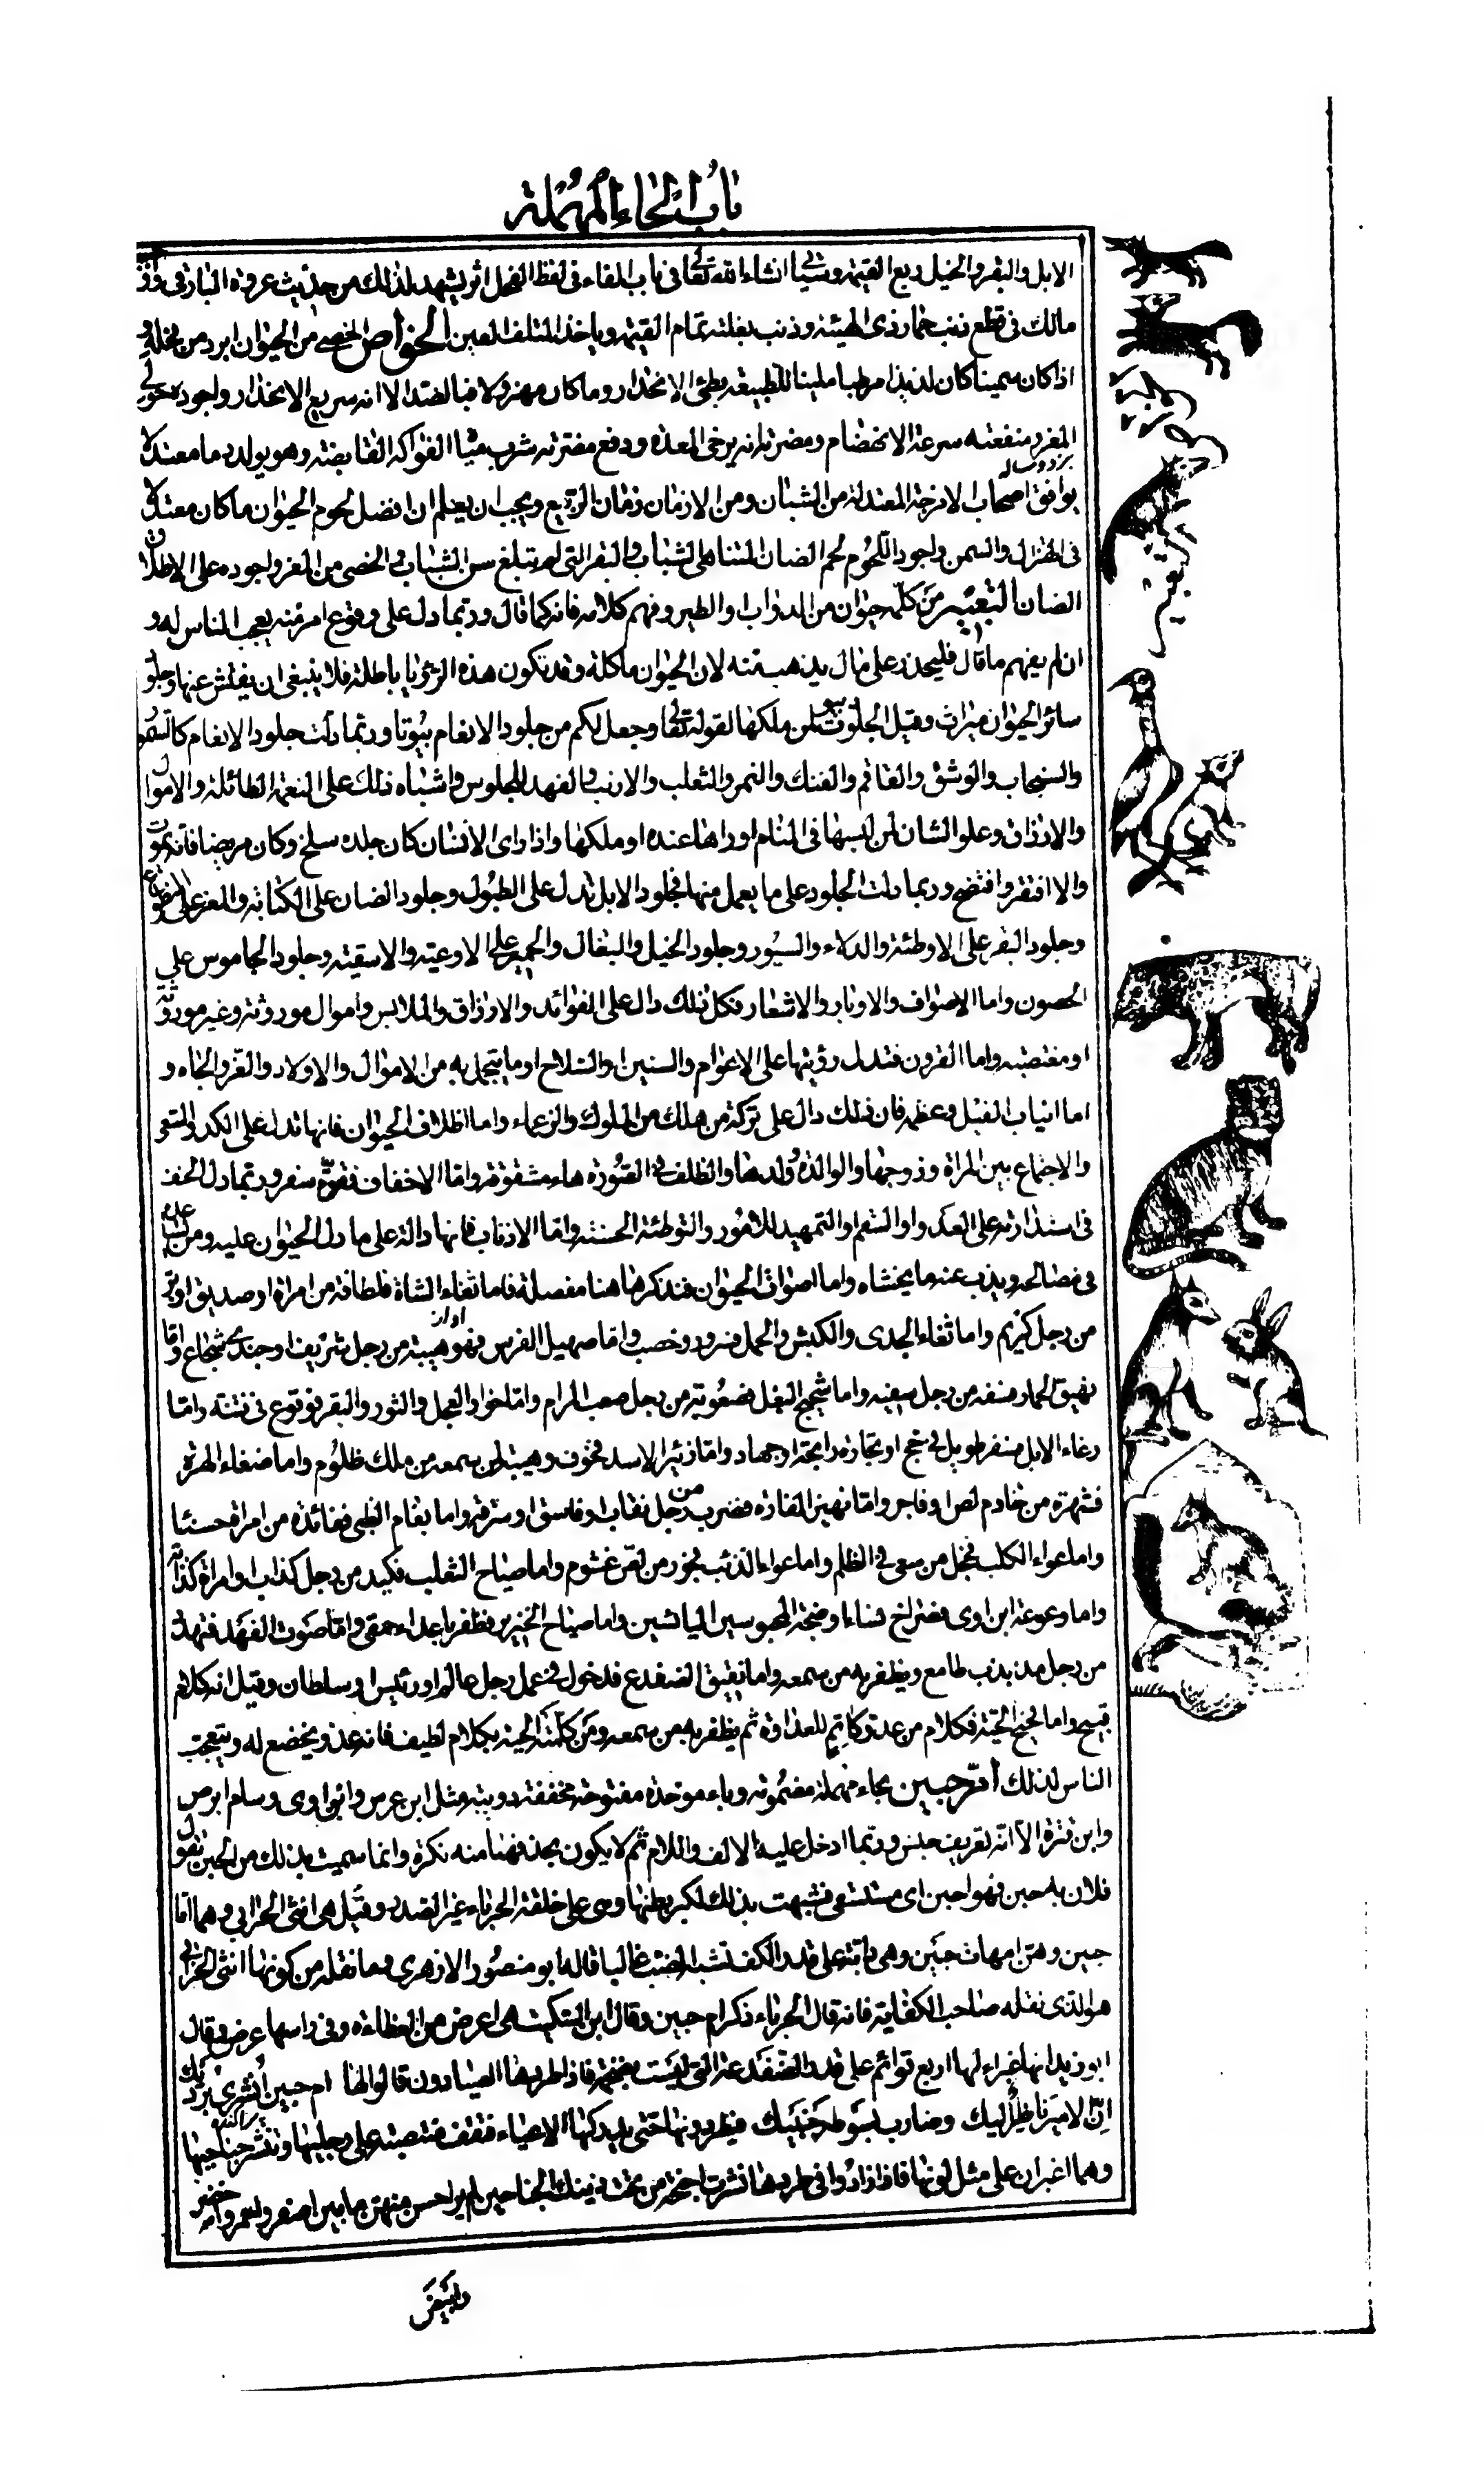 باب الحاء المهملة
الابل والبقر والخيل ربع القيمة وسياتى انشاء الله تعالى فى باب الفاء فى لفظ الفحل اثر يشهد لذلك من حديث عروة البارقى
مالك فى قطع ذنب حمار ذى الهيئة وذنب بغلته تمام القيمة وياخذ المتلف العين الخواص الخصى من الحيوان ابرد من فحله و
اذا كان سمينا كان لذيذا مرطبا ملينا للطبيعة بطئ الانحدار وما كان مهزولا فبالضد الا انه سريع الانحدار واجوده حولى
المعز ومنفعته سرعة الانهضام ومضرته انه يرخى المعدة ودفع مضرته شرب مياه الفواكه القابضة وهو يولد دما معتدلا
يوافق اصحاب الامزجة المعتدلة من الشبان ومن الازمان زمان الربيع ويجب ان يعلم ان افضل لحوم الحيوان ما كان معتدلا
فى الهزال والسمن واجود اللحوم لحم الضان المتناهى الشباب والبقر التى لم تبلغ سن الشباب والخصى من المعز واجوده على الاطلاق
الضان التعبير من كلمه حيوان من الدواب والطير وفهم كلامه فانه كما قال وربما دل على وقوع امر منه يعجب الناس له و
ان لم يفهم ما قال فليحذر على مال يذهب منه لان الحيوان ماكلة وقد تكون هذه الرؤيا باطلة فلا ينبغى ان يفتش عنها وجلود
سائر الحيوان ميراث وقيل الجلود بيوت لمن ملكها لقوله تعالى وجعل لكم من جلود الانعام بيوتا وربما دلت جلود الانعام كالسمور
والسنجاب والوشق والقاقم والفنك والنمر والثعلب والارنب والفهد للجلوس واشباه ذلك على النعمة الطائلة والاموال
والارزاق وعلو الشان لمن لبسها فى المنام او راها عنده او ملكها واذا راى الانسان كان جلده سلخ وكان مريضا فانه يموت
والا افتقر وافتضح وربما دلت الجلود على ما يعمل منها فجلود الابل تدل على الطبول وجلود الضان على الكتابة والمعز على
وجلود البقر على الاوطئة والدلاء والسيور وجلود الخيل والبغال والحمير على الاوعية والاسقية وجلود الجاموس على
الحصون واما الاصواف والاوبار والاشعار فكل ذلك دال على الفوائد والارزاق والملابس واموال موروثة وغير موروثة
او مغتصبة واما القرون فتدل رؤيتها على الاعوام والسنين والسلاح او ما يتجمل به من الاموال والاولاد والعز والجاه و
اما انياب الفيل وعظمه فان ذلك دال على تركة من هلك من الملوك والزعماء واما اظلاف الحيوان فانها تدل على الكد والسعى
والاجتماع بين المراة وزوجها والوالدة وولدها والظلف فى الصورة هاء مشقوقة واما الاخفاف فقوة سفر وربما دل الخف
فى استدارته على العدو او السقم او التمهيد للامور والتوطئة الحسنة واما الاذناب فانها دالة على ما دل الحيوان عليه ومن
فى مصالحه ويذب عنه ما يخشاه واما اصوات الحيوان فنذكرها هنا مفصلة فاما ثغاء الشاة فلطافة من امراة او صديق او بر
من رجل كريم واما ثغاء الجدى والكبش والحمل فسرور وخصب واما صهيل الفرس فهو هيبة من رجل شريف او جندى شجاع واما
نهيق الحمار فسفه من رجل سفيه واما شحيج البغل فصعوبة من رجل صعب المرام واما خوار العجل والثور والبقر فوقوع فى فتنة واما
رغاء الابل فسفر طويل فى حج او تجارة رابحة او جهاد واما زئير الاسد فخوف وهيبة لمن سمعه من ملك ظلوم واما ضغاء الهرة
فشهرة من خادم لص او فاجر واما نهيز الفارة فضرب من رجل نقاب او فاسق او سرقة واما بغام الظبى ففائدة من امراة حسناء
واما عواء الكلب فخجل من سعى فى الظلم واما عواء الذئب فجور من لص غشوم واما صياح الثعلب فكيد من رجل كذاب او امراة كذابة
واما وعوعة ابن اوى فصراخ نساء او ضجة المحبوسين اليائسين واما صياح الخنزير فظفر باعداء حمقى واما صوت الفهد فتهدد
من رجل مذبذب طامع ويظفر به من سمعه واما نقيق الضفدع فدخول فى عمل رجل عالم او رئيس او سلطان وقيل انه كلام
قبيح واما فحيح الحية فكلام من عدو كاتم للعداوة ثم يظفر به من سمعه ومن كلمته الحية بكلام لطيف فانه عدو يخضع له ويتعجب
الناس لذلك ام حبين بحاء مهملة مضمومة وباء موحدة مفتوحة مخففة دويبة مثل ابن عرس وابن اوى وسام ابرص
وابن قترة الا انه تعريف جنس وربما ادخل عليه الالف واللام ثم لا يكون بحذفهما منه نكرة وانما سميت بذلك من الحبن تقول
فلان به حبن فهو احبن اى مستسقى فشبهت بذلك لكبر بطنها وهى على خلقة الحرباء غير الصدر وقيل هى انثى الحرابى وهما اما
حبين وهن امهات حبين وهى دابة على قدر الكف تشبه الضب غالبا قاله ابو منصور الازهرى وما نقله من كونها انثى الحرابى
هو الذى نقله صاحب الكفاية فانه قال الحرباء ذكر ام حبين وقال ابن السكيت هى اعرض من العظاءة وفى راسها عرض وقال
ابو زيد انها غبراء لها اربع قوائم على قدر الضفدعة التى ليست بضخمة فاذا طردها الصيادون قالوا لها ام حبين انشرى برديك
ان الامير ناظر اليك وضارب بسوطه جنبيك فيطردونها حتى يدركها الاعياء فتقف منتصبة على رجليها وتنشر جناحيها
وهما اغبران على مثل لونها فاذا زادوا فى طردها نشرت اجنحة من تحت ذينك الجناحين لم ير احسن منهن ما بين اصفر واحمر واخضر
وابيض